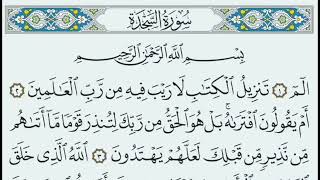 سُورَةُ السَّجْدَةِ
بِسْمِ اللَّهِ الرَّحْمَٰنِ الرَّحِيمِ
الٓمٓ ﴿١﴾ تَنزِيلُ الْكِتَابِ لَا رَيْبَ فِيهِ مِن رَّبِّ الْعَالَمِينَ ﴿٢﴾
أَمْ يَقُولُونَ افْتَرَاهُ ۚ بَلْ هُوَ الْحَقُّ مِن رَّبِّكَ لِتُنذِرَ قَوْمًا مَّا أَتَاهُم
مِّن نَّذِيرٍ مِّن قَبْلِكَ لَعَلَّهُمْ يَهْتَدُونَ ﴿٣﴾ اللَّهُ الَّذِي خَلَقَ